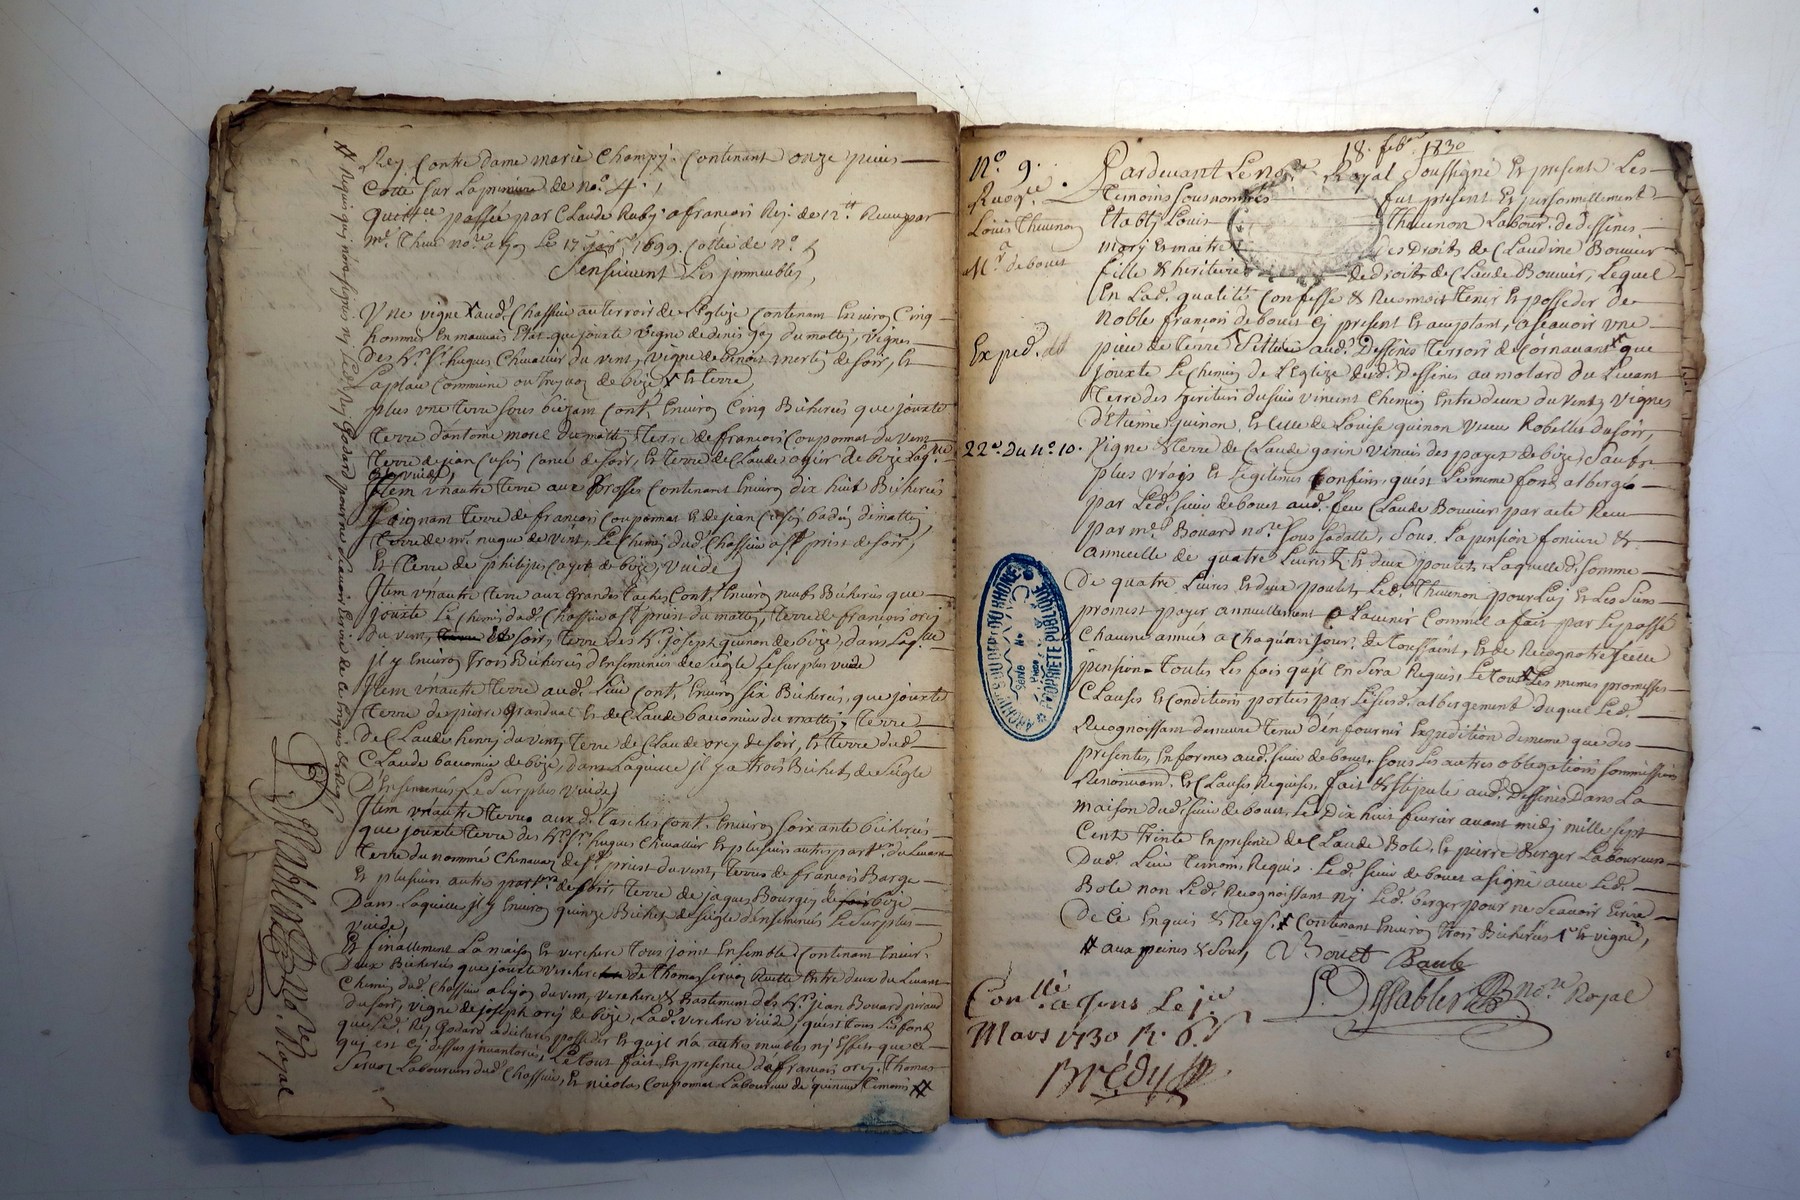 Rey Contre dame marie Champy. Contenant onze pieces
Cotté sur la premiere de no. 4.
quitt.ce passée par Claude Ruby a francois Rey. de 12.tt Receu par
m.e Thue no.re a Lyon Le 17. 1699. Cottée de N.o 5
Sensuivent Les jmmeubles,
Vne vigne aud. Chassieu au terroir de L'Eglize Contenant Environ Cinq
hommés En mauvais Etat que jouxte vigne de denis goy du matty, vignes
des h.rs s.r hugues Chevallier du vent, vigne de Benoit de soir, Et
La place Commune de bize Et terre,
plus vne terre sous Cont. Environ Cinq Bicherées que jouxte
terre d'antoine morel du matty, terre de francois Couponnat du Vent
terre de jean de soir, Et terre de Claude de bize Laq.lle
vuide,
Jtem vn autre terre aux Brosses Contenant Environ dix huit Bicherées
joignant terre de francois Couponnat Et de jean de matty,
terre de mr. de vent, Le Chemin dud. Chassieu a s.t priest de soir,
Et terre de philipes de bize, vuide
Jtem vn autre terre aux Grandes taches Cont. Environ neufs Bicherées que
jouxte Le Chemin dud. Chassieu a s.t priest du matty, terre de francois orcy
du vent, soir, terre des h.rs joseph guinon de bize, dans Laq.lle
jl y Environ trois Bicherées d'Ensemencées de seigle Le surplus vuide
Jtem vn autre terre aud. Lieu Cont. Environ six Bicherées, que jouxte
terre de pierre Grandval Et de Claude du matty, terre
de Claude henry du vent, terre de Claude orcy de soir, Et terre dud.
Claude de bize, dans Laquelle jl y a trois Bichets de seigle
D'Ensemencés Le Surplus Vuide,
Jtem vn autre terre aux d. tasches Cont. Environ soixante bicherées
que jouxte terre des h.rs s.r hugues Chevallier Et plusieurs autres part.ers du Levant
terre du nommé Chenavaz de s.t priest du vent, terres de francois Barge
Et plusieurs autres part.ers de soir, terre de jaques Bourgey de bize
Dans Laquelle jl y Environ quinze Bichets de seigle d'ensemencés Le Surplus
vuide,
Et finallement La maison Et verchere tous joint Ensemble Contenant Envir.
deux Bicherées que jouxte verchere de Thomas servoz Ruette Entre deux du Levant
Chemin dud. Chassieu a Lyon du vent, verchere & Bastiment des h.rs jean Bouard
du soir, vigne de joseph orcy de bize, Lad. verchere vuide, qui est tous Les fonds
que Led. Rey Godard a declaré posseder Et qu'il n'a autres meubles ny Effets que ce
qui est cy dessus jnventoriés, Le tout fait En presence de francois orcy, Thomas
servoz Laboureurs dud. Chassieu, Et nicolas Couponnat Laboureur de temoins
Requis qui n'ont signés ny Led. Rey Godard pour ne scavoir Ecrire de ce Enquis Et Req.
Dessablieres no.re Royal
18. feb. 1730
N.o 9.
Recog.ce
Louis Thevenon
a M.r de bouet
Exped.
22.e Du N.o 10.
Pardevant Le no.re Royal soussigné Et present Les
temoins sousnommés fut present Et personnellement
Etably Louis Thevenon Labour. de dessines
mary Et maitre des Droits de Claudine Bouvier
fille & heritiere de droits de Claude Bouvier, Lequel
En Lad. qualité Confesse & Reconnoit tenir Et posseder de
noble francois de bouet cy present Et aceptant, ascavoir vne
piece de terre Scittuée aud. Dessines terroir de Cornavant que
jouxte Le Chemin de L'Eglize dud. Dessines au molard du Levant
terre des heritiers du sieur vincent Chemin Entre deux du vent, vignes
d'Etienne guinon, Et celle de Louise guinon veuve Robellet du soir,
vigne & terre de Claude garin vinais des payet de bize, Sauf ses
plus vrays Et Legitimes Confins, qu'est Le meme fond albergé
par Led. sieur de bouet aud. feu Claude Bouvier par acte Receu
par m.e Bouard no.re sous sa datte, Sous La pension fonciere &
annuelle de quatre Livres & Et deux poulets, Laquelle d. somme
De quatre Livres Et deux poulets, Led. Thevenon pour Luy Et Les siens
promest payer annuellement a L'avenir Comme a fait par Le passé
Chacune années a Chaques jour. de Toussaint, Et de Recognotre icelle
pension toutes Les fois quil En sera Requis, Le tout Les mêmes promesses
Clauses Et Conditions portées par Le susd. albergement duquel Led.
Recognoissant demeure tenu d'en fournir Expedition de meme que des
presentes, En formes aud. sieur de bouet, sous Les autres obligations sommissions
Renonciaons. Et Clauses Requises, fait & stipulé aud. Dessines Dans La
maison dud. sieur de bouet, Le Dix huit fevrier avant midy mille sept
Cent trente En presence de Claude Bole, Et pierre Berger Laboureurs
Dud. Lieu temoins Requis. Led. sieur de bouet a signé avec Led.
Bole non Led. Recognoissant ny Led. berger pour ne scavoir Ecrire
De Ce Enquis & Req. Contenant Environ trois Bicherées Et vigne,
aux peines & sous,
Bouet Baule
Dessablieres no.re Royal
Con.llé a Jons Le j.er
Mars 1730 R. 6.s
Brédy
ARCHIVES DU DEP.T DU RHONE
PROPRIETE PUBLIQUE